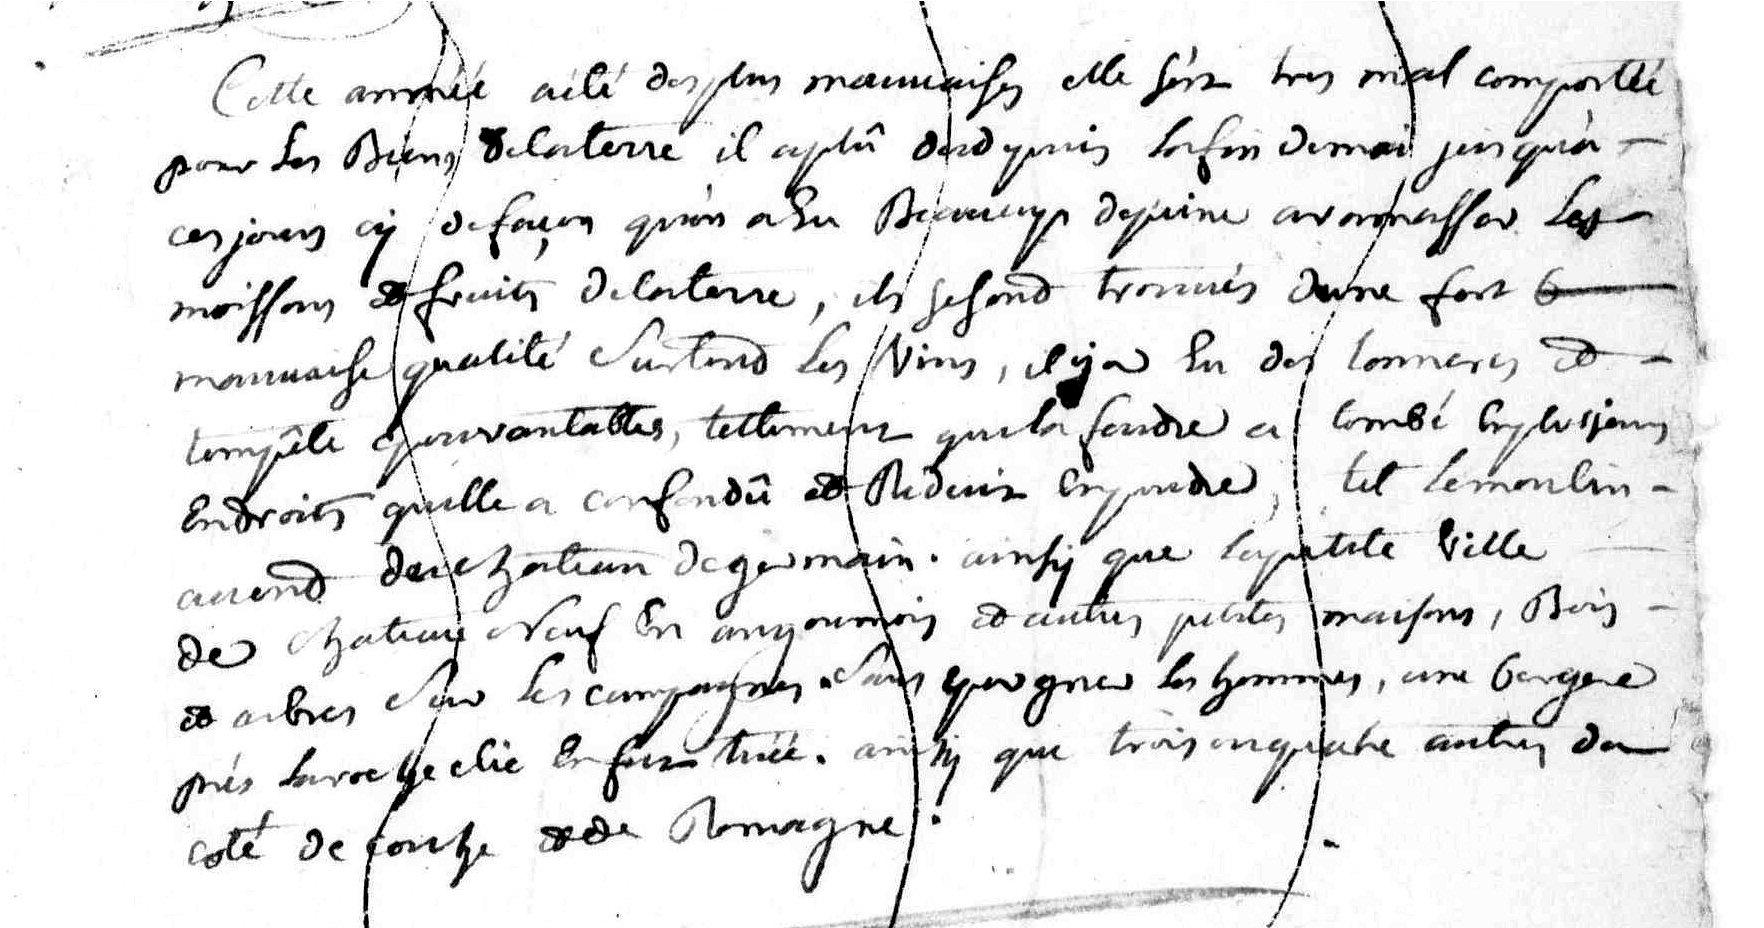 Cette année a été des plus mauvaises elle s'est tres mal comporteé
pour Les Biens de la terre il a plû dedepuis la fin de mai jusqu'à -
ces jours cy de façon qu'on a Eu Beaucoup de peine a rammasser Les
moissons et fruits de la terre, ils se sond trouvés dune fort
mauvaise qualité surtoud Les Vins, il y a Eu des tonneres et -
tempête epouvantables, tellement que la foudre a tombé En plusieurs
Endroits quelle a confondû et Reduit En poudre, tel Le moulin -
a vend du chateau de germain. ainsy que la petite Ville
de chateau Neuf En angoumois et autres petites maisons, Bois -
et arbres sur Les campagnes. sans epargner Les hommes, une bergere
prés la En fut tuéé. ainsy que trois ou quatre autres du
coté de couhe et de Romagne.